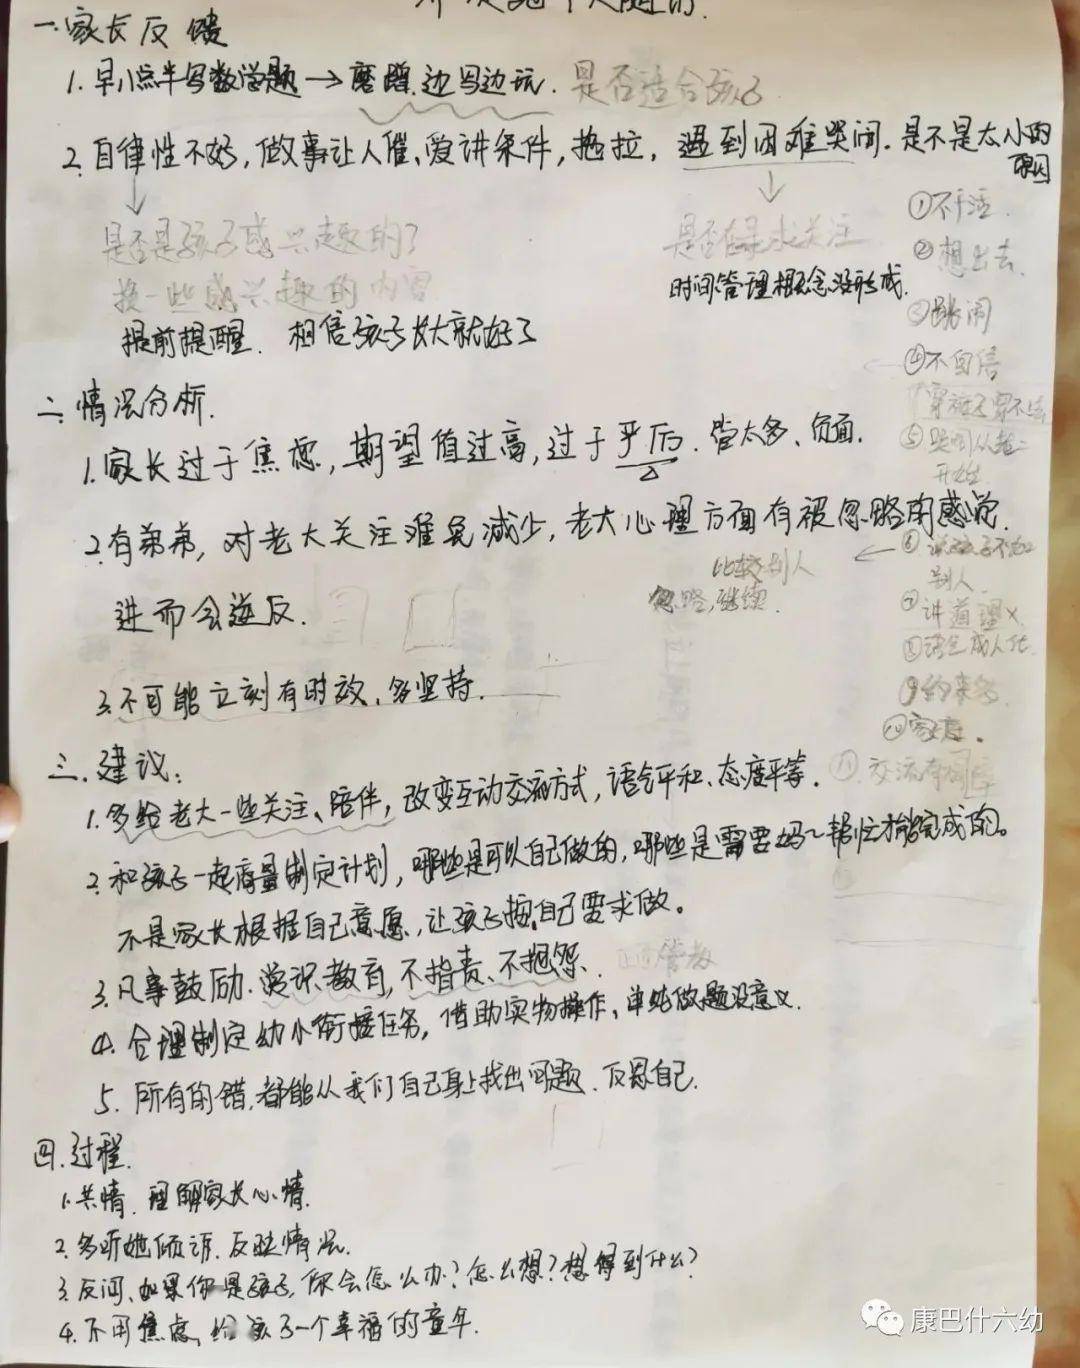 一.家长反馈
1.早八点半写数学题→磨蹭.边写边玩.是否适合孩子
2.自律性不好,做事让人催、爱讲条件,拖拉,遇到困难哭闹.是不是太小的原因
是否是孩子感兴趣的?
换一些感兴趣的内容
是否在寻求关注
时间管理概念没形成.
提前提醒. 相信孩子长大就好了
①不干活.
②想出去.
③跳闹
④不自信
二.情况分析.
1.家长过于焦虑,期望值过高,过于严厉.管太多、负面.
2.有弟弟,对老大关注难免减少,老大心理方面有被忽略的感觉.
进而会逆反.
比较别人
忽略,继续.
⑥说孩子不如
别人.
⑦讲道理×
⑧语气成人化.
3.不可能立刻有时效,多坚持.
三.建议:
1.多给老大一些关注、陪伴,改变互动交流方式,语气平和、态度平等.
2.和孩子一起商量制定计划,哪些是可以自己做的,哪些是需要妈~帮忙才能完成的。
不是家长根据自己意愿,让孩子按自己要求做。
3.凡事鼓励.赏识教育,不指责、不抱怨.
4.合理制定幼小衔接任务,借助实物操作、单纯做题没意义.
5.所有的错,都能从我们自己身上找出问题.反思自己.
四.过程.
1.共情.理解家长心情.
2.多听她倾诉.反映情况.
3.反问、如果你是孩子,你会怎么办?怎么想?想得到什么?
4.不用焦虑,给孩子一个幸福的童年.
康巴什六幼